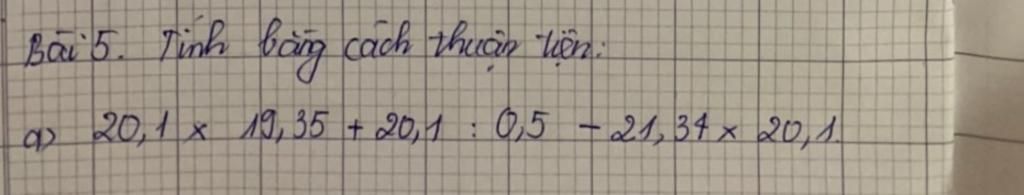 Bài 5. Tính bằng cách thuận tiện:
a) 20,1 × 19,35 + 20,1 : 0,5 - 21,34 × 20,1.